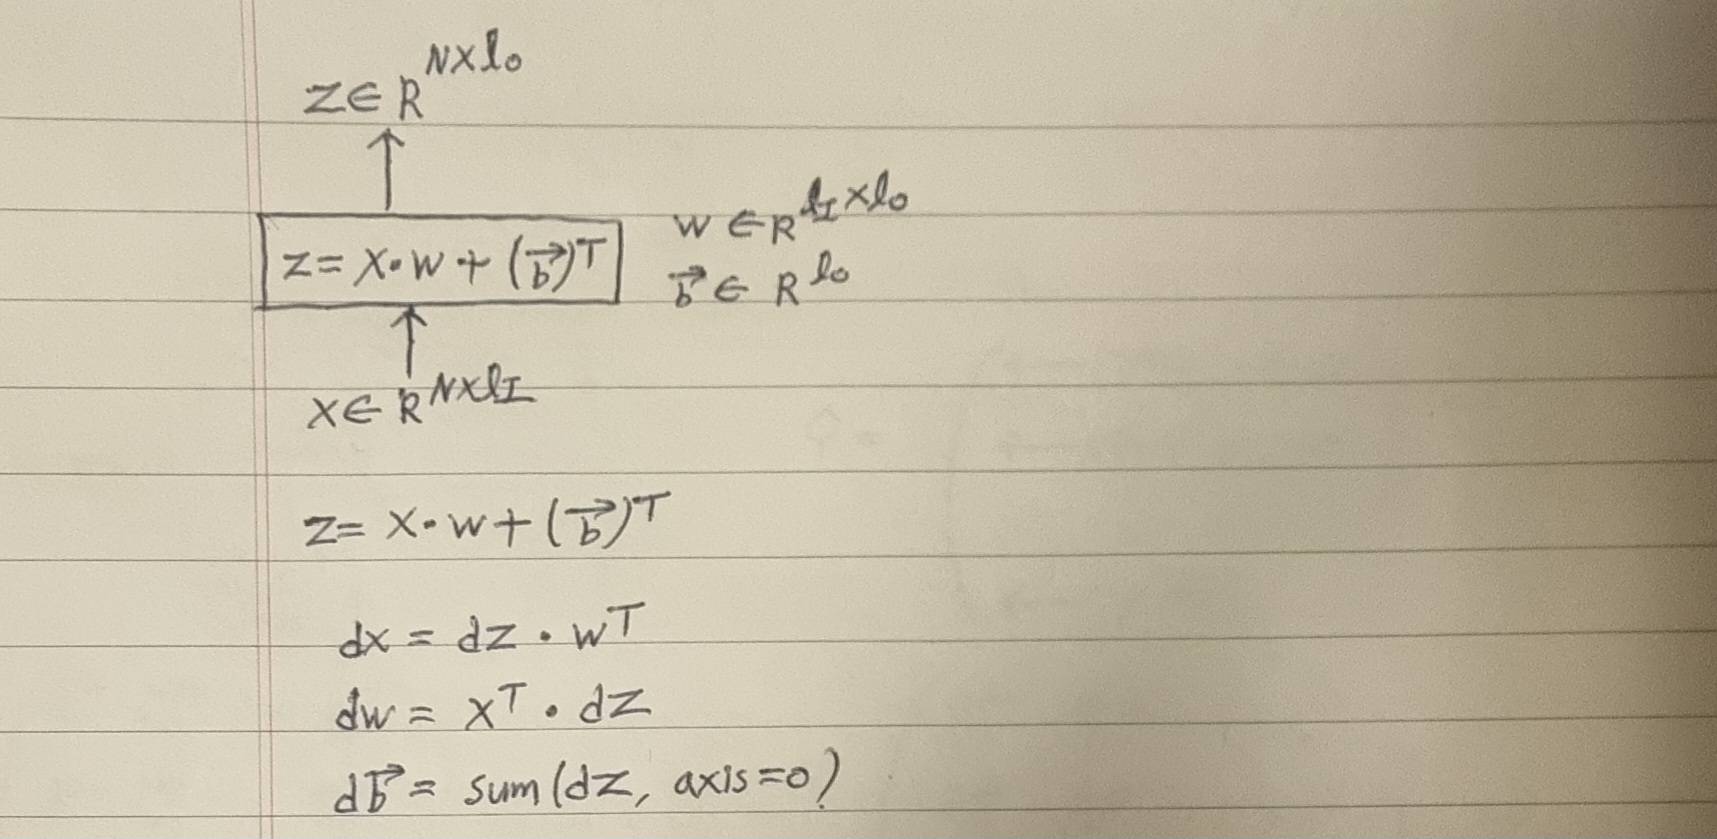 Z∈R^{N×l_0}
Z=X·W+(\vec{b})^T
W∈R^{l_I×l_0}
\vec{b}∈R^{l_0}
X∈R^{N×l_I}
Z=X·W+(\vec{b})^T
dx=dz·W^T
dw=X^T·dz
d\vec{b}=sum(dz, axis=0)